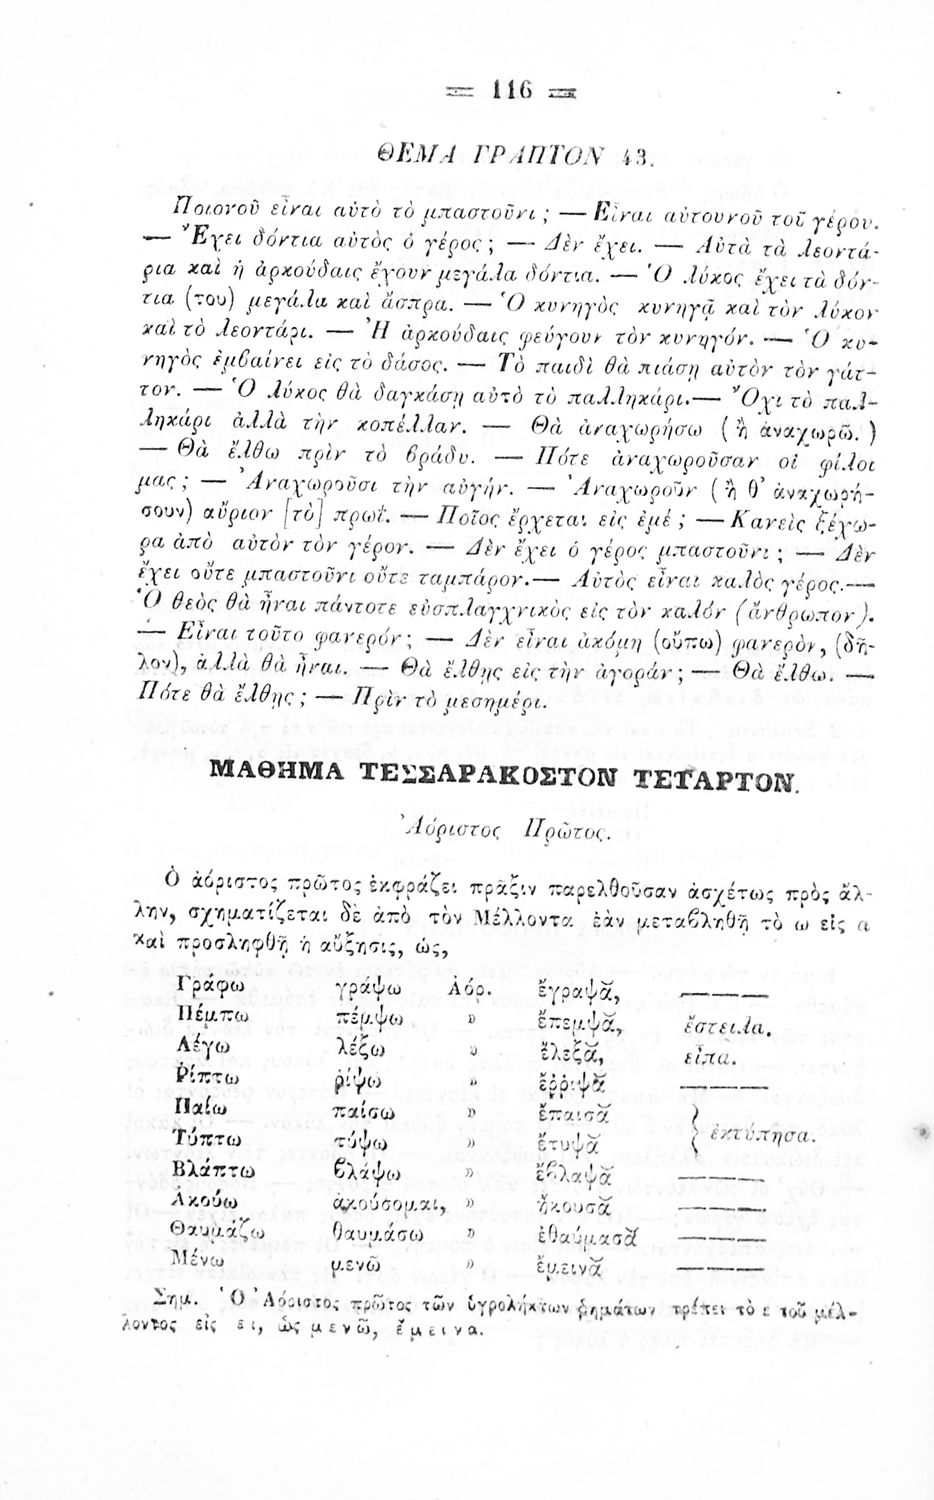 116
ΘΕΜΑ ΓΡΑΠΤΟΝ 43.
Ποιονοῦ εἶναι αὐτὸ τὸ μπαστοῦνι ; — Εἶναι αὐτουνοῦ τοῦ γέρου.
— Ἔχει δόντια αὐτὸς ὁ γέρος ; — Δὲν ἔχει. — Αὐτὰ τὰ λεοντά-
ρια καὶ ἡ ἀρκούδαις ἔχουν μεγάλα δόντια. — Ὁ λύκος ἔχει τὰ δόν-
τια (του) μεγάλα καὶ ἄσπρα. — Ὁ κυνηγὸς κυνηγᾷ καὶ τὸν λύκον
καὶ τὸ λεοντάρι. — Ἡ ἀρκούδαις φεύγουν τὸν κυνηγόν. — Ὁ κυ-
νηγὸς ἐμβαίνει εἰς τὸ δάσος. — Τὸ παιδὶ θὰ πιάσῃ αὐτὸν τὸν γάτ-
τον. — Ὁ λύκος θὰ δαγκάσῃ αὐτὸ τὸ παλληκάρι.— Ὄχι τὸ παλ-
ληκάρι ἀλλὰ τὴν κοπέλλαν. — Θὰ ἀναχωρήσω ( ἢ ἀναχωρῶ. )
— Θὰ ἔλθω πρὶν τὸ βράδυ. — Πότε ἀναχωροῦσαν οἱ φίλοι
μας ; — Ἀναχωροῦσι τὴν αὐγήν. — Ἀναχωροῦν ( ἢ θ’ ἀναχωρή-
σουν) αὔριον [τὸ] πρωΐ. — Ποῖος ἔρχεται εἰς ἐμέ ; — Κανεὶς ξέχω-
ρα ἀπὸ αὐτὸν τὸν γέρον. — Δὲν ἔχει ὁ γέρος μπαστοῦνι ; — Δὲν
ἔχει οὔτε μπαστοῦνι οὔτε ταμπάρον.— Αὐτὸς εἶναι καλὸς γέρος.—
Ὁ θεὸς θὰ ἦναι πάντοτε εὐσπλαγχνικὸς εἰς τὸν καλόν (ἄνθρωπον).
— Εἶναι τοῦτο φανερόν ; — Δὲν εἶναι ἀκόμη (οὔπω) φανερὸν, (δῆ-
λον), ἀλλὰ θὰ ἦναι. — Θὰ ἔλθῃς εἰς τὴν ἀγοράν ; — Θὰ ἔλθω. —
Πότε θὰ ἔλθῃς ; — Πρὶν τὸ μεσημέρι.
ΜΑΘΗΜΑ ΤΕΣΣΑΡΑΚΟΣΤΟΝ ΤΕΤΑΡΤΟΝ.
Ἀόριστος Πρῶτος.
Ὁ ἀόριστος πρῶτος ἐκφράζει πρᾶξιν παρελθοῦσαν ἀσχέτως πρὸς ἄλ-
λην, σχηματίζεται δὲ ἀπὸ τὸν Μέλλοντα ἐὰν μεταβληθῇ τὸ ω εἰς α
καὶ προσληφθῇ ἡ αὔξησις, ὡς,
Γράφω γράψω Αόρ. ἔγραψᾰ, ———
Πέμπω πέμψω » ἔπεμψᾰ, ἔστειλα.
Λέγω λέξω » ἔλεξᾰ, εἶπα.
Ῥίπτω ῥίψω » ἔῤῥιψᾰ ———
Παίω παίσω » ἔπαισᾰ
Τύπτω τύψω » ἔτυψᾰ } ἐκτύπησα.
Βλάπτω βλάψω » ἔβλαψᾰ ———
Ακούω ἀκούσομαι, » ἤκουσᾰ ———
Θαυμάζω θαυμάσω » ἐθαύμασᾰ ———
Μένω μενῶ » ἔμεινᾰ ———
Σημ. Ὁ Ἀόριστος πρῶτος τῶν ὑγρολήκτων ῥημάτων τρέπει τὸ ε τοῦ μέλ-
λοντος εἰς ει, ὡς μενῶ, ἔμεινα.